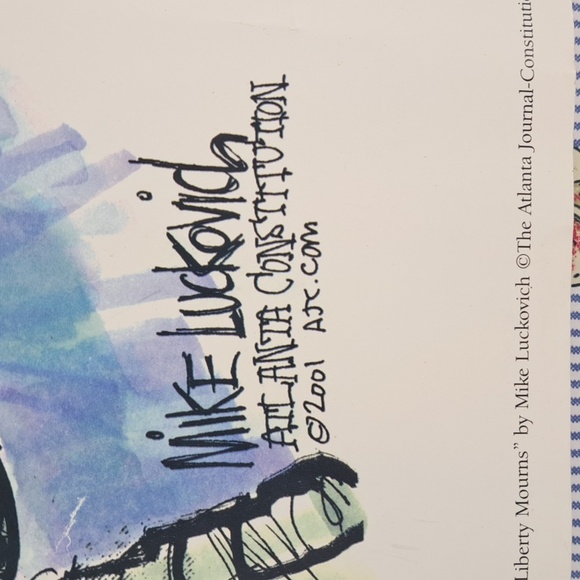 MiKE Luckovich
ATLANTA CONSTITUTION
©2001 AJC.COM
Liberty Mourns” by Mike Luckovich ©The Atlanta Journal-Constitutio